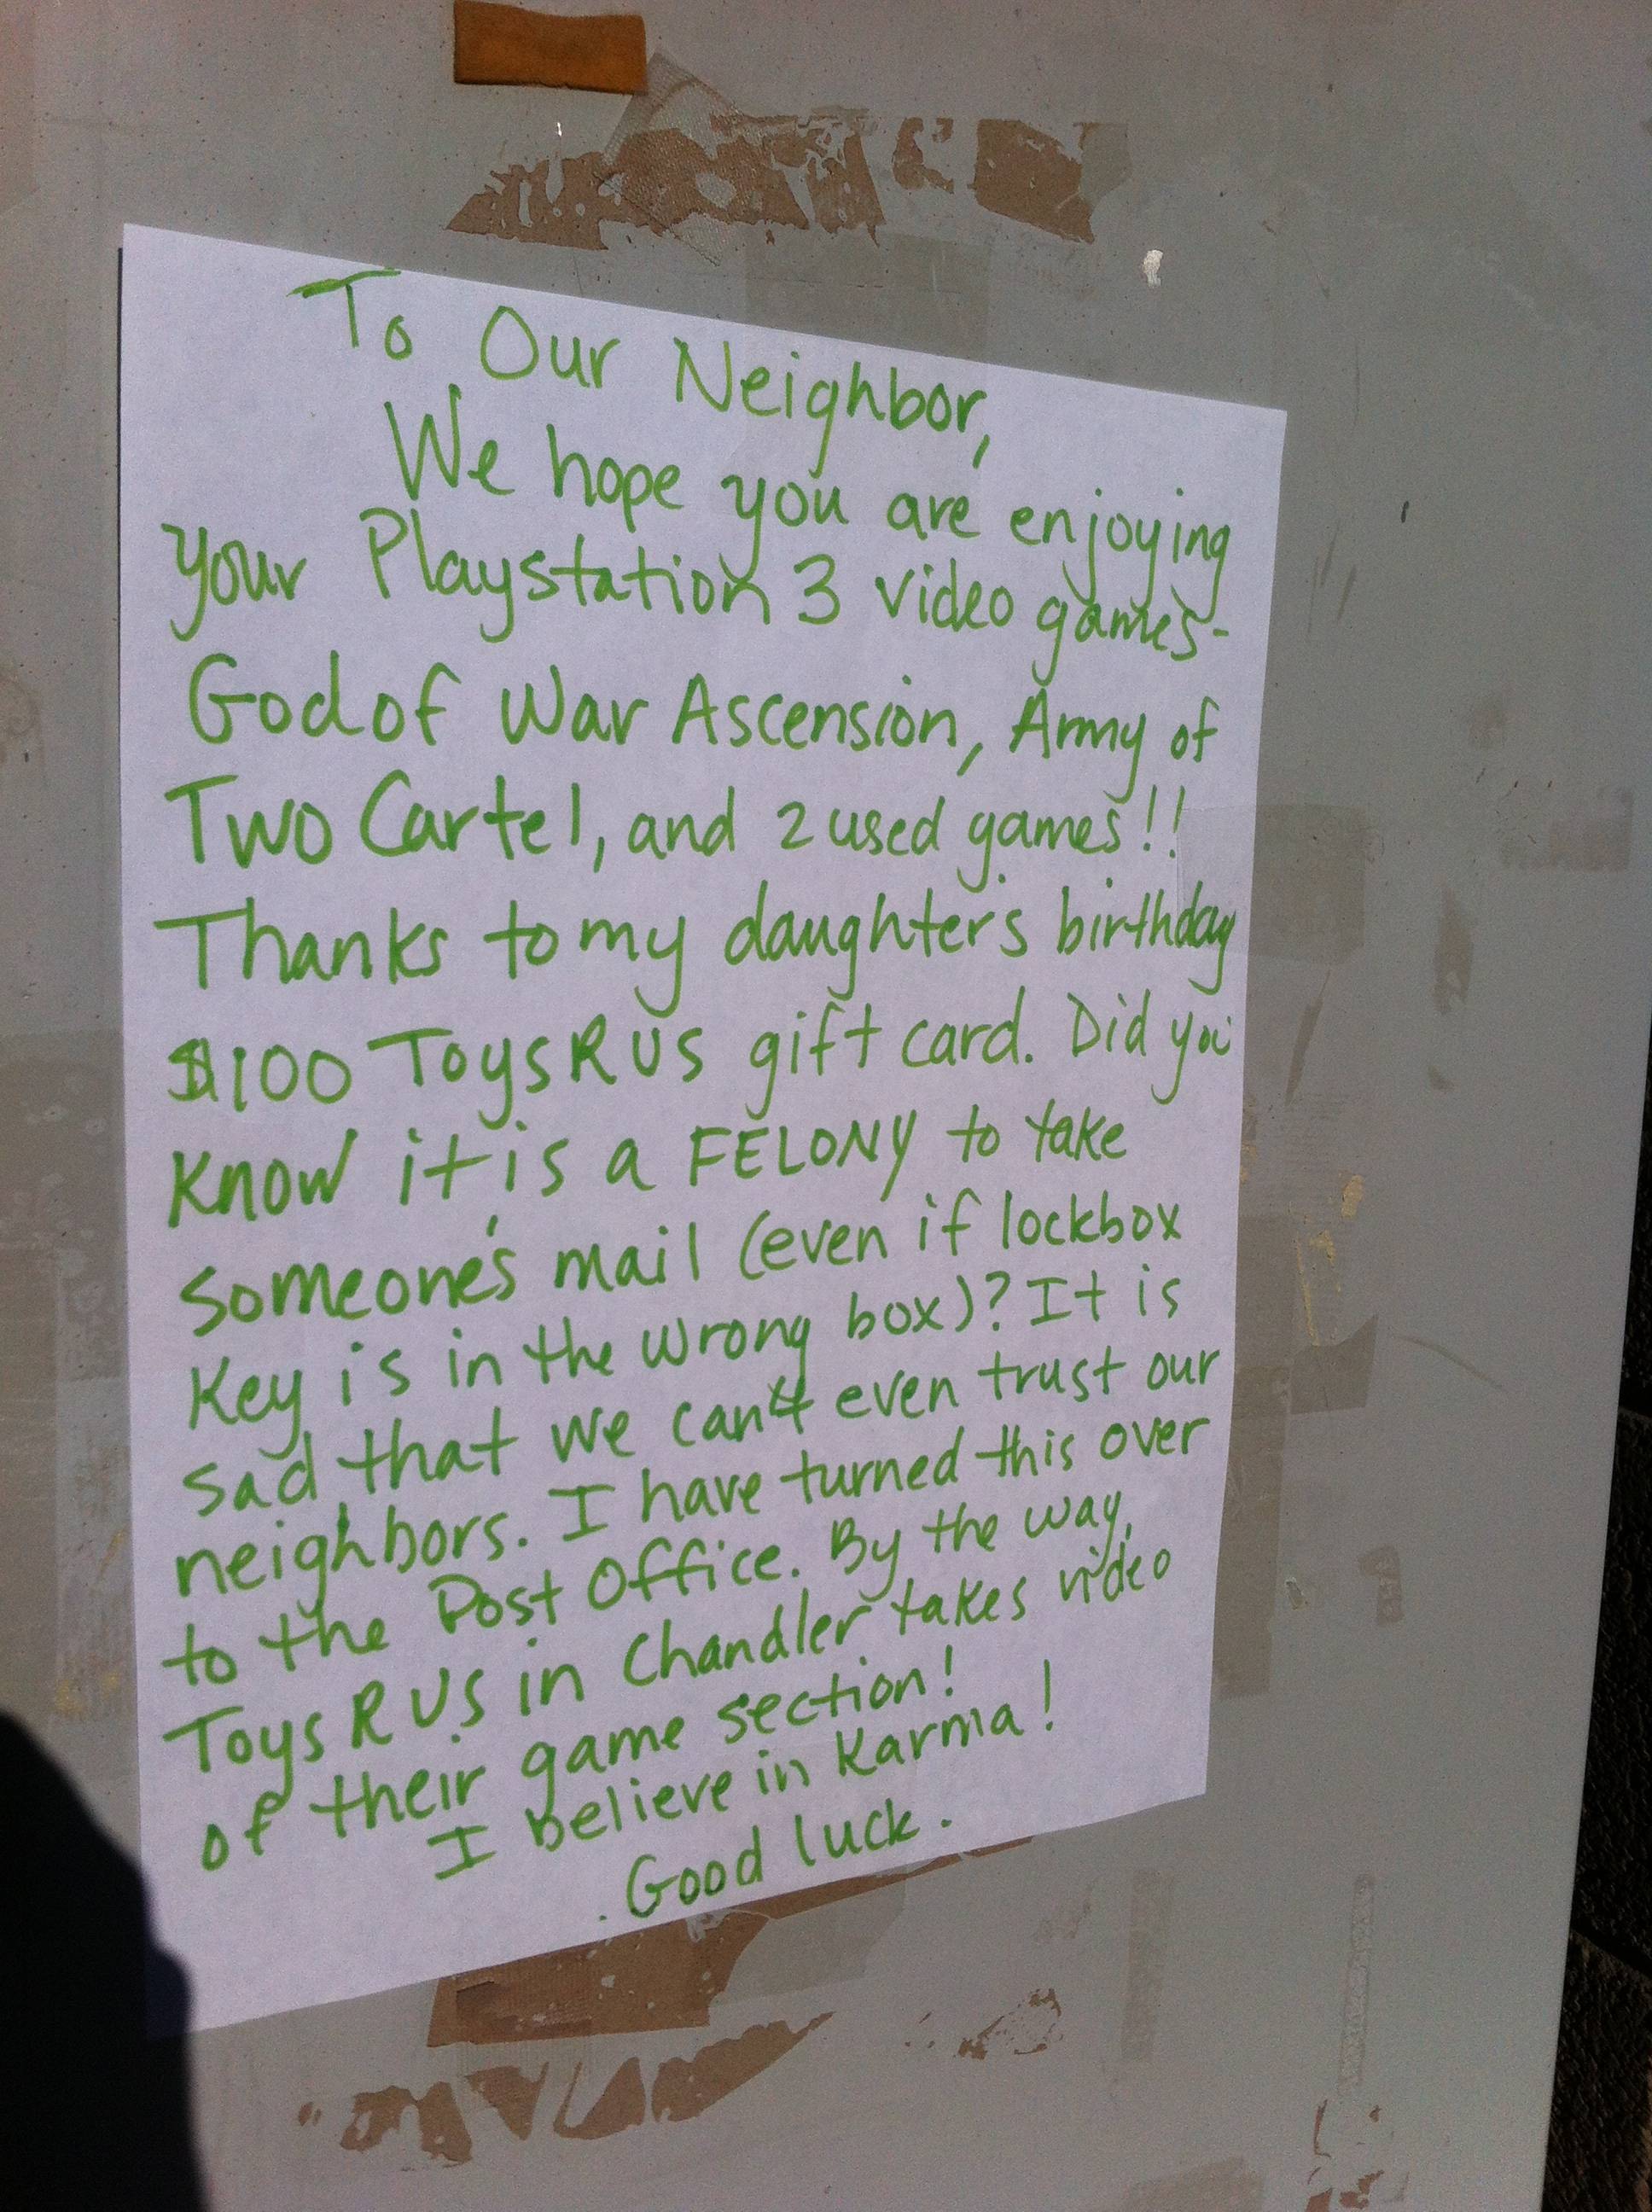 To Our Neighbor,
We hope you are enjoying
your Playstation 3 video games-
God of War Ascension, Army of
Two Cartel, and 2 used games!!
Thanks to my daughter's birthday
$100 Toys R US gift card. Did you
Know it is a FELONY to take
someone's mail (even if lockbox
Key is in the wrong box)? It is
sad that we can't even trust our
neighbors. I have turned this over
to the Post Office. By the way,
Toys R US in Chandler takes video
of their game section!
I believe in Karma!
Good luck.